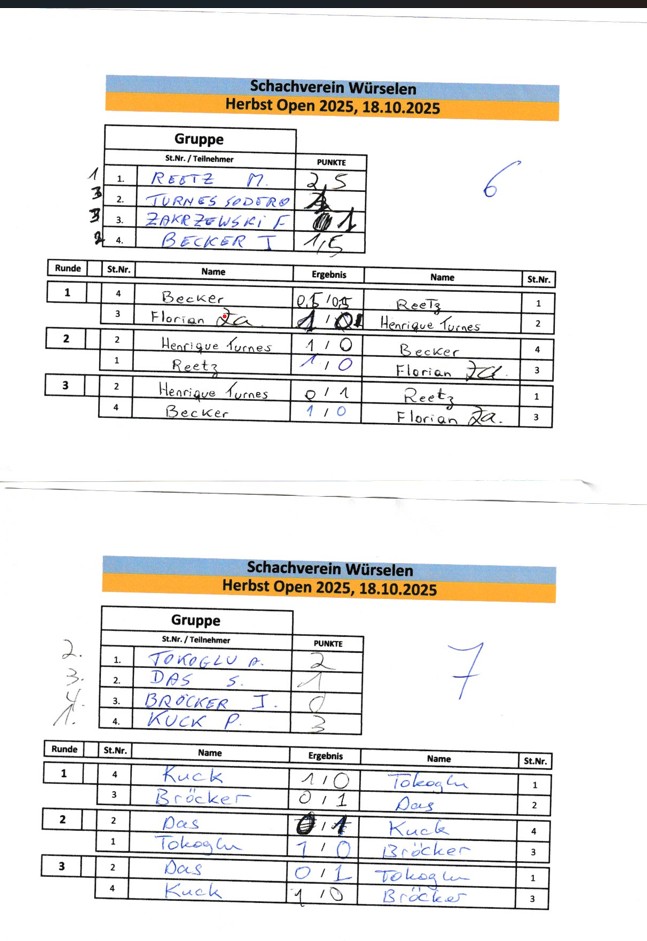 Schachverein Würselen
Herbst Open 2025, 18.10.2025
Gruppe
St.Nr. / Teilnehmer PUNKTE
1 1. REETZ M. 2,5
6
3 2. TURNES SODERO
3 3. ZAKRZEWSKI F 1
2 4. BECKER I 1,5
Runde St.Nr. Name Ergebnis Name St.Nr.
1 4 Becker 0,5 / 0,5 Reetz 1
3 Florian Za. 1 / 0 Henrique Turnes 2
2 2 Henrique Turnes 1 / 0 Becker 4
1 Reetz 1 / 0 Florian Za. 3
3 2 Henrique Turnes 0 / 1 Reetz 1
4 Becker 1 / 0 Florian Za. 3
Schachverein Würselen
Herbst Open 2025, 18.10.2025
Gruppe
St.Nr. / Teilnehmer PUNKTE
2. 1. TOKOGLU A. 2
7
3. 2. DAS S. 1
4. 3. BRÖCKER I. 0
1. 4. KUCK P. 3
Runde St.Nr. Name Ergebnis Name St.Nr.
1 4 Kuck 1 / 0 Tokoglu 1
3 Bröcker 0 / 1 Das 2
2 2 Das 0 / 1 Kuck 4
1 Tokoglu 1 / 0 Bröcker 3
3 2 Das 0 / 1 Tokoglu 1
4 Kuck 1 / 0 Bröcker 3